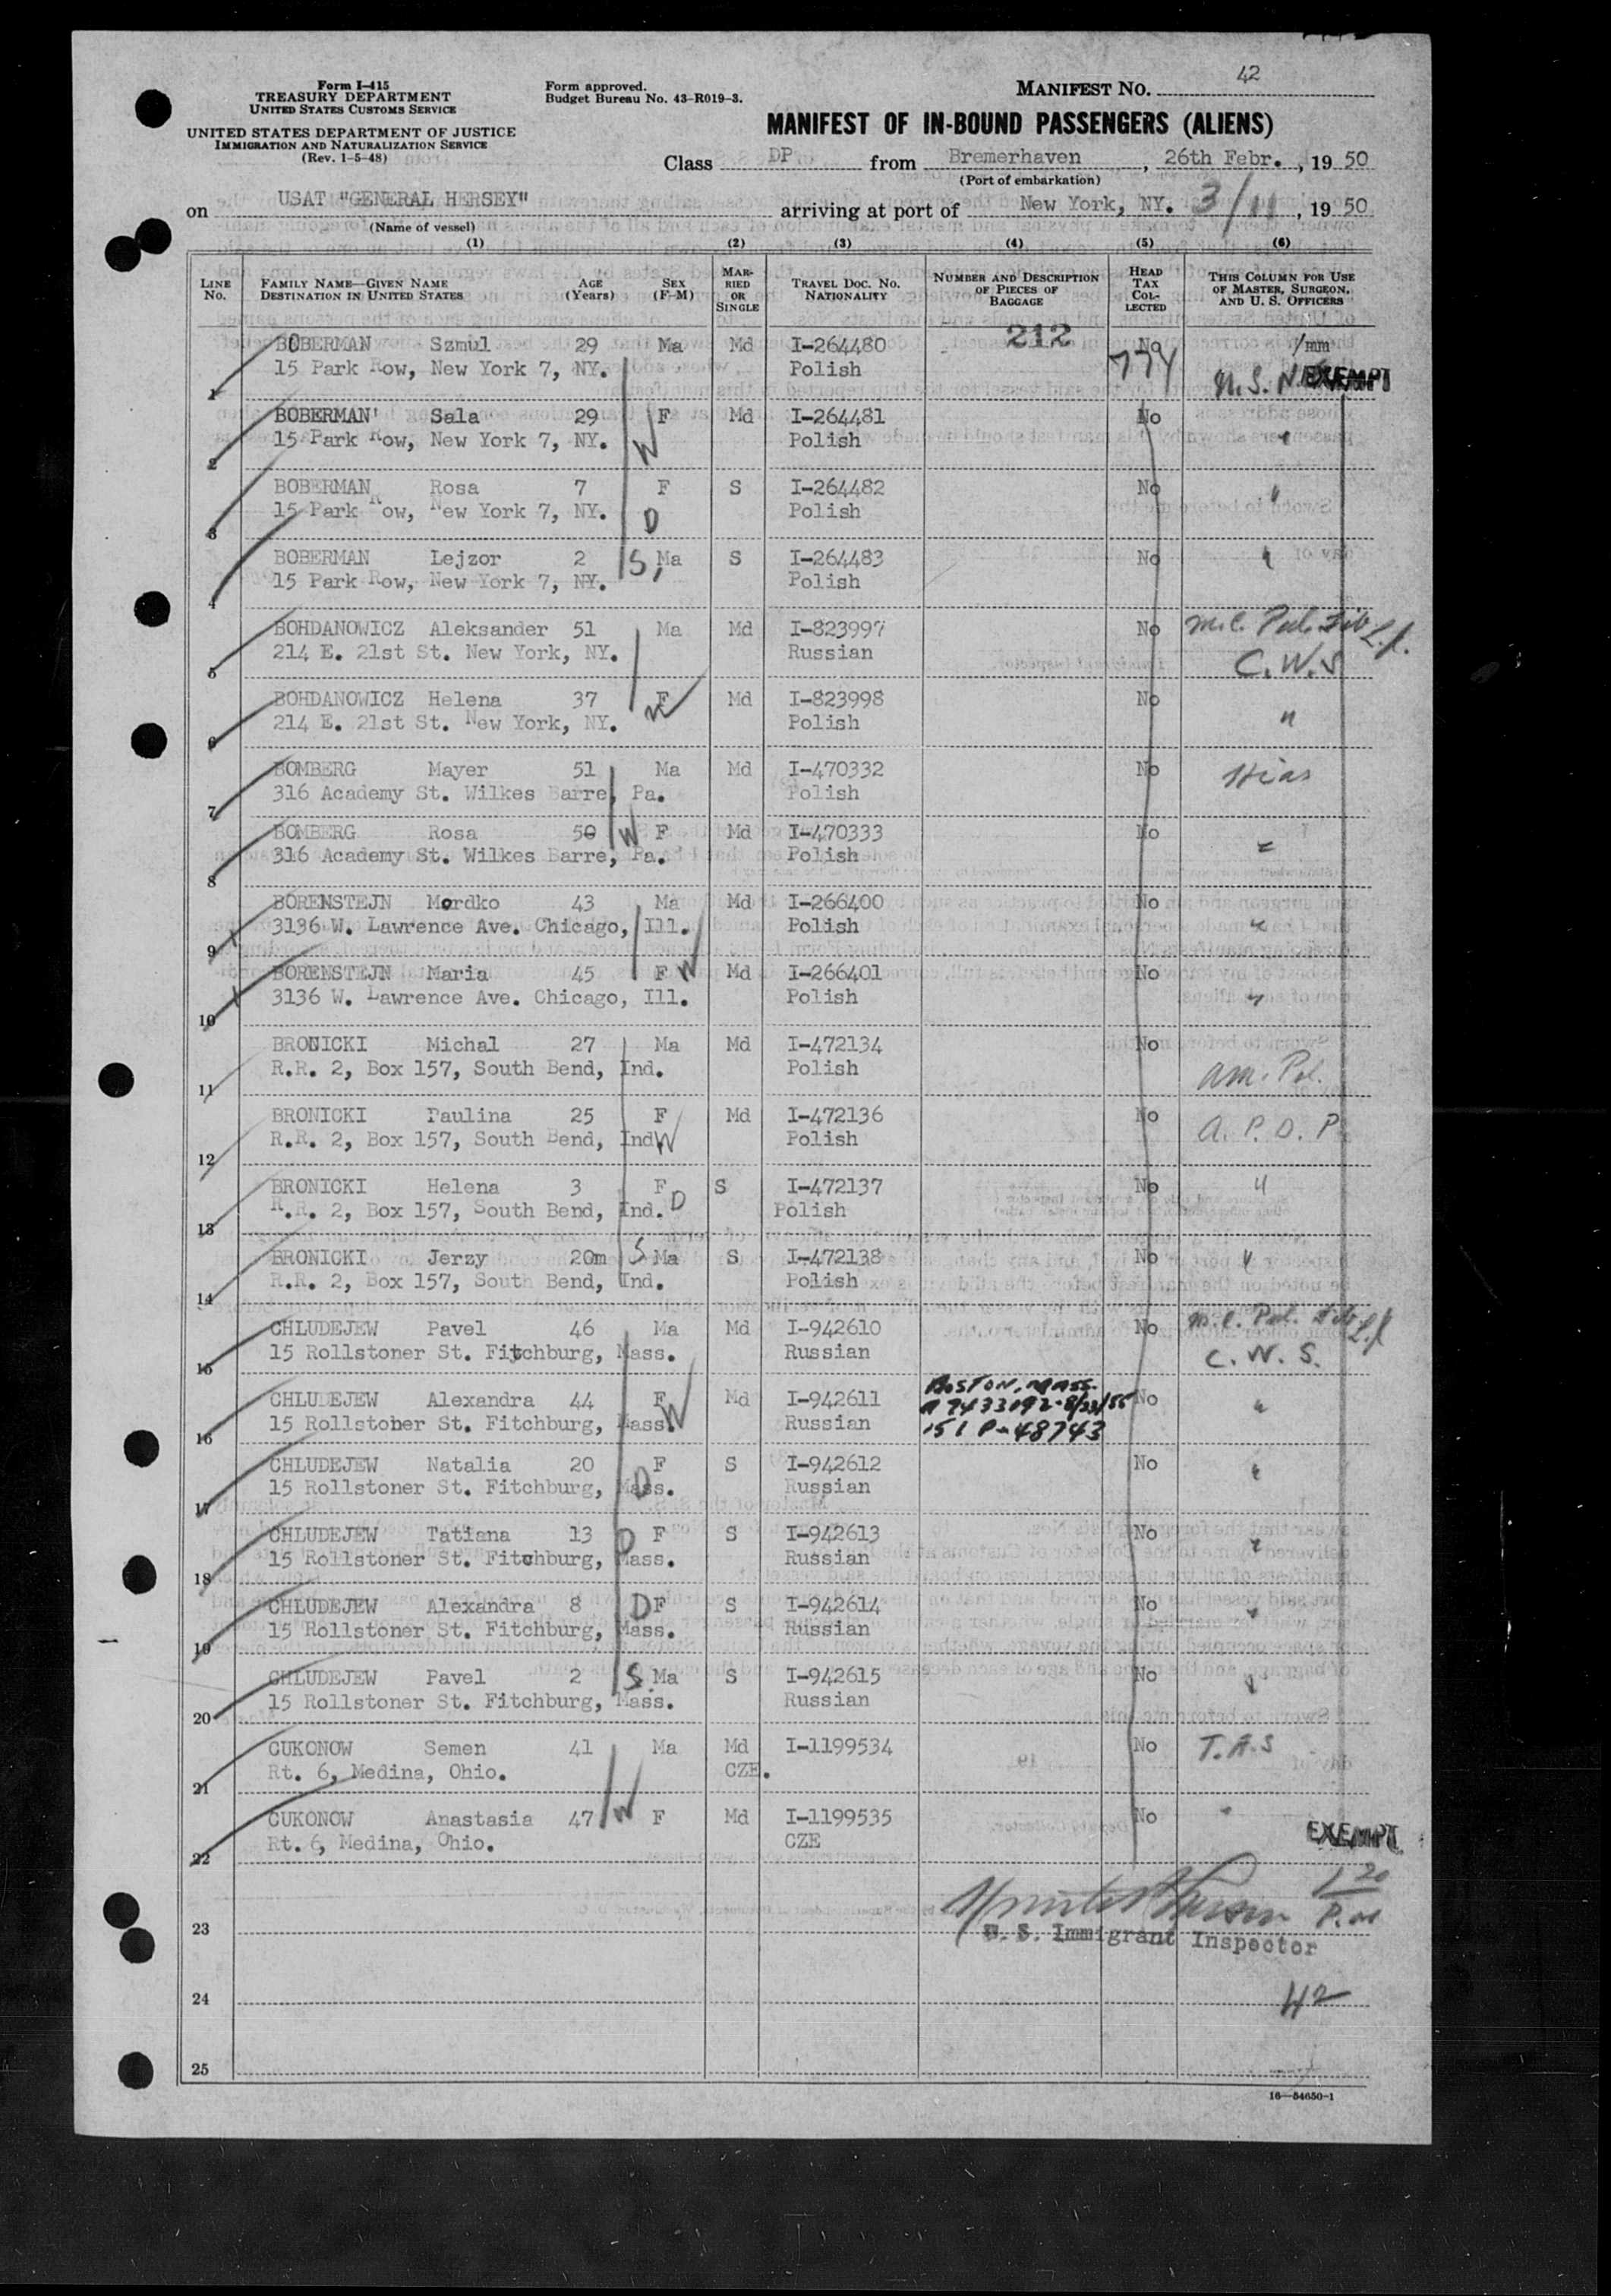 Form I-415
TREASURY DEPARTMENT
UNITED STATES CUSTOMS SERVICE
UNITED STATES DEPARTMENT OF JUSTICE
IMMIGRATION AND NATURALIZATION SERVICE
(Rev. 1-5-48)
Form approved.
Budget Bureau No. 43-R019-3.
MANIFEST NO. 42
MANIFEST OF IN-BOUND PASSENGERS (ALIENS)
Class DP from Bremerhaven, 26th Febr., 1950
(Port of embarkation)
on USAT "GENERAL HERSEY" arriving at port of New York, NY. 3/11, 1950
(Name of vessel)
(1) (2) (3) (4) (5) (6)
LINE NO. FAMILY NAME—GIVEN NAME DESTINATION IN UNITED STATES AGE (Years) SEX (F-M) MARRIED OR SINGLE TRAVEL DOC. NO. NATIONALITY NUMBER AND DESCRIPTION OF PIECES OF BAGGAGE HEAD TAX COLLECTED THIS COLUMN FOR USE OF MASTER, SURGEON, AND U. S. OFFICERS
212
BOBERMAN Szmul 29 Ma Md I-264480 No
1 15 Park Row, New York 7, NY. Polish EXEMPT
BOBERMAN Sala 29 F Md I-264481 No
2 15 Park Row, New York 7, NY. W Polish "
BOBERMAN Rosa 7 F S I-264482 No "
3 15 Park Row, New York 7, NY. D Polish
BOBERMAN Lejzor 2 S, Ma S I-264483 No "
4 15 Park Row, New York 7, NY. Polish
BOHDANOWICZ Aleksander 51 Ma Md I-823997 No
5 214 E. 21st St. New York, NY. Russian C.W.S
BOHDANOWICZ Helena 37 F Md I-823998 No
6 214 E. 21st St. New York, NY. W Polish "
BOMBERG Mayer 51 Ma Md I-470332 No Hias
7 316 Academy St. Wilkes Barre, Pa. Polish
BOMBERG Rosa 50 W F Md I-470333 No
8 316 Academy St. Wilkes Barre, Pa. Polish "
BORENSTEJN Mordko 43 Ma Md I-266400 No
9 3136 W. Lawrence Ave. Chicago, Ill. Polish "
BORENSTEJN Maria 45 F W Md I-266401 No
10 3136 W. Lawrence Ave. Chicago, Ill. Polish "
BRONICKI Michal 27 Ma Md I-472134 No
11 R.R. 2, Box 157, South Bend, Ind. Polish am. Pol.
BRONICKI Paulina 25 F Md I-472136 No
12 R.R. 2, Box 157, South Bend, Ind W Polish A. P. D. P.
BRONICKI Helena 3 F S I-472137 No "
13 R.R. 2, Box 157, South Bend, Ind. D Polish
BRONICKI Jerzy 20m S Ma S I-472138 No "
14 R.R. 2, Box 157, South Bend, Ind. Polish
CHLUDEJEW Pavel 46 Ma Md I-942610 No
15 15 Rollstoner St. Fitchburg, Mass. Russian C. W. S.
BOSTON, MASS.
CHLUDEJEW Alexandra 44 F Md I-942611 No "
16 15 Rollstoner St. Fitchburg, Mass. W Russian 151 P-48743
CHLUDEJEW Natalia 20 F S I-942612 No "
17 15 Rollstoner St. Fitchburg, Mass. D Russian
CHLUDEJEW Tatiana 13 D F S I-942613 No "
18 15 Rollstoner St. Fitchburg, Mass. Russian
CHLUDEJEW Alexandra 8 D F S I-942614 No "
19 15 Rollstoner St. Fitchburg, Mass. Russian
CHLUDEJEW Pavel 2 S Ma S I-942615 No "
20 15 Rollstoner St. Fitchburg, Mass. Russian
CUKONOW Semen 41 Ma Md I-1199534 No T.A.S
21 Rt. 6, Medina, Ohio. CZE.
CUKONOW Anastasia 47 W F Md I-1199535 No "
22 Rt. 6, Medina, Ohio. CZE EXEMPT
1 20
P.M
23 U. S. Immigrant Inspector
24 42
25
16—54650-1